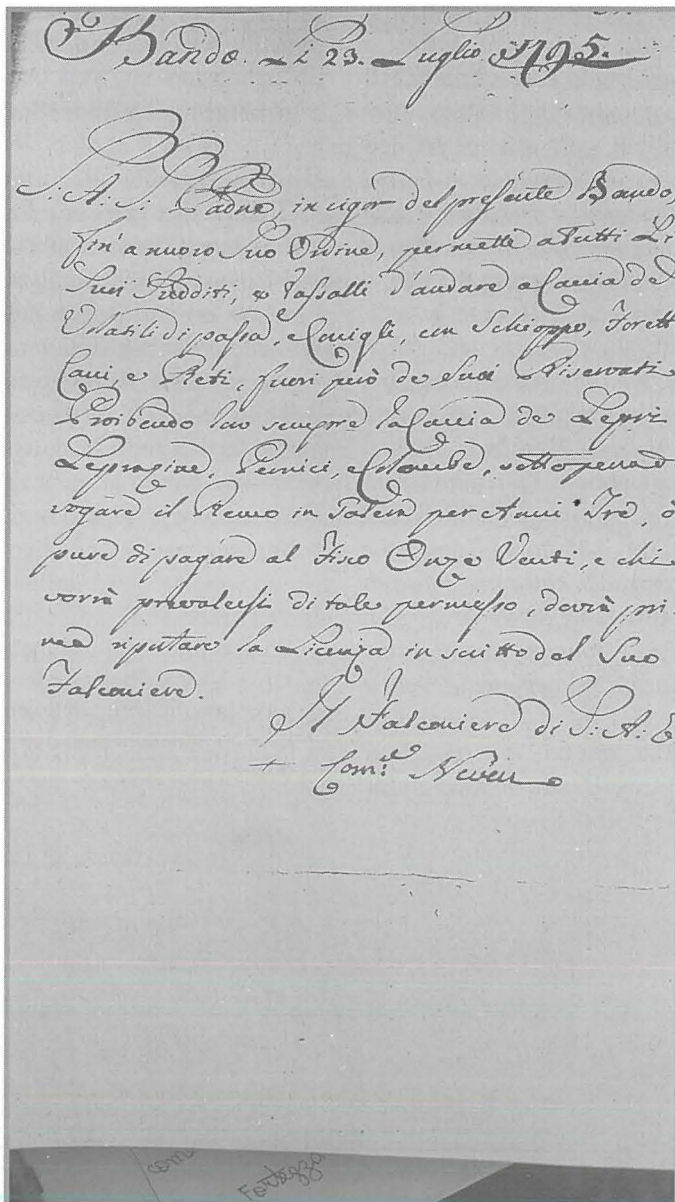 Bando. Li 23. Luglio 1795.
S: A: S: Padne, in vigor del presente Bando,
fin' a nuovo Suo Ordine, permette a tutti Li
Suoi Sudditi, e Vassalli d'andare a Caccia de
Volatili di passa, e Conigli, con Schioppo, Forett
Cani, e Reti, fuori però de Suoi Riservati
Proibendo loro sempre la Caccia de Lepri
Pernici, e Colombe, sotto pena d
vogare il Remo in Galera per Anni Tre, ò
pure di pagare al Fisco Onze Venti, e chi
vorrà prevalersi di tale permesso, dovrà pri-
ma riputare la Licenza in scritto dal Suo
Falconiere.
Il Falconiere di S: A: E
Com:re Neveu
com
Fortezza